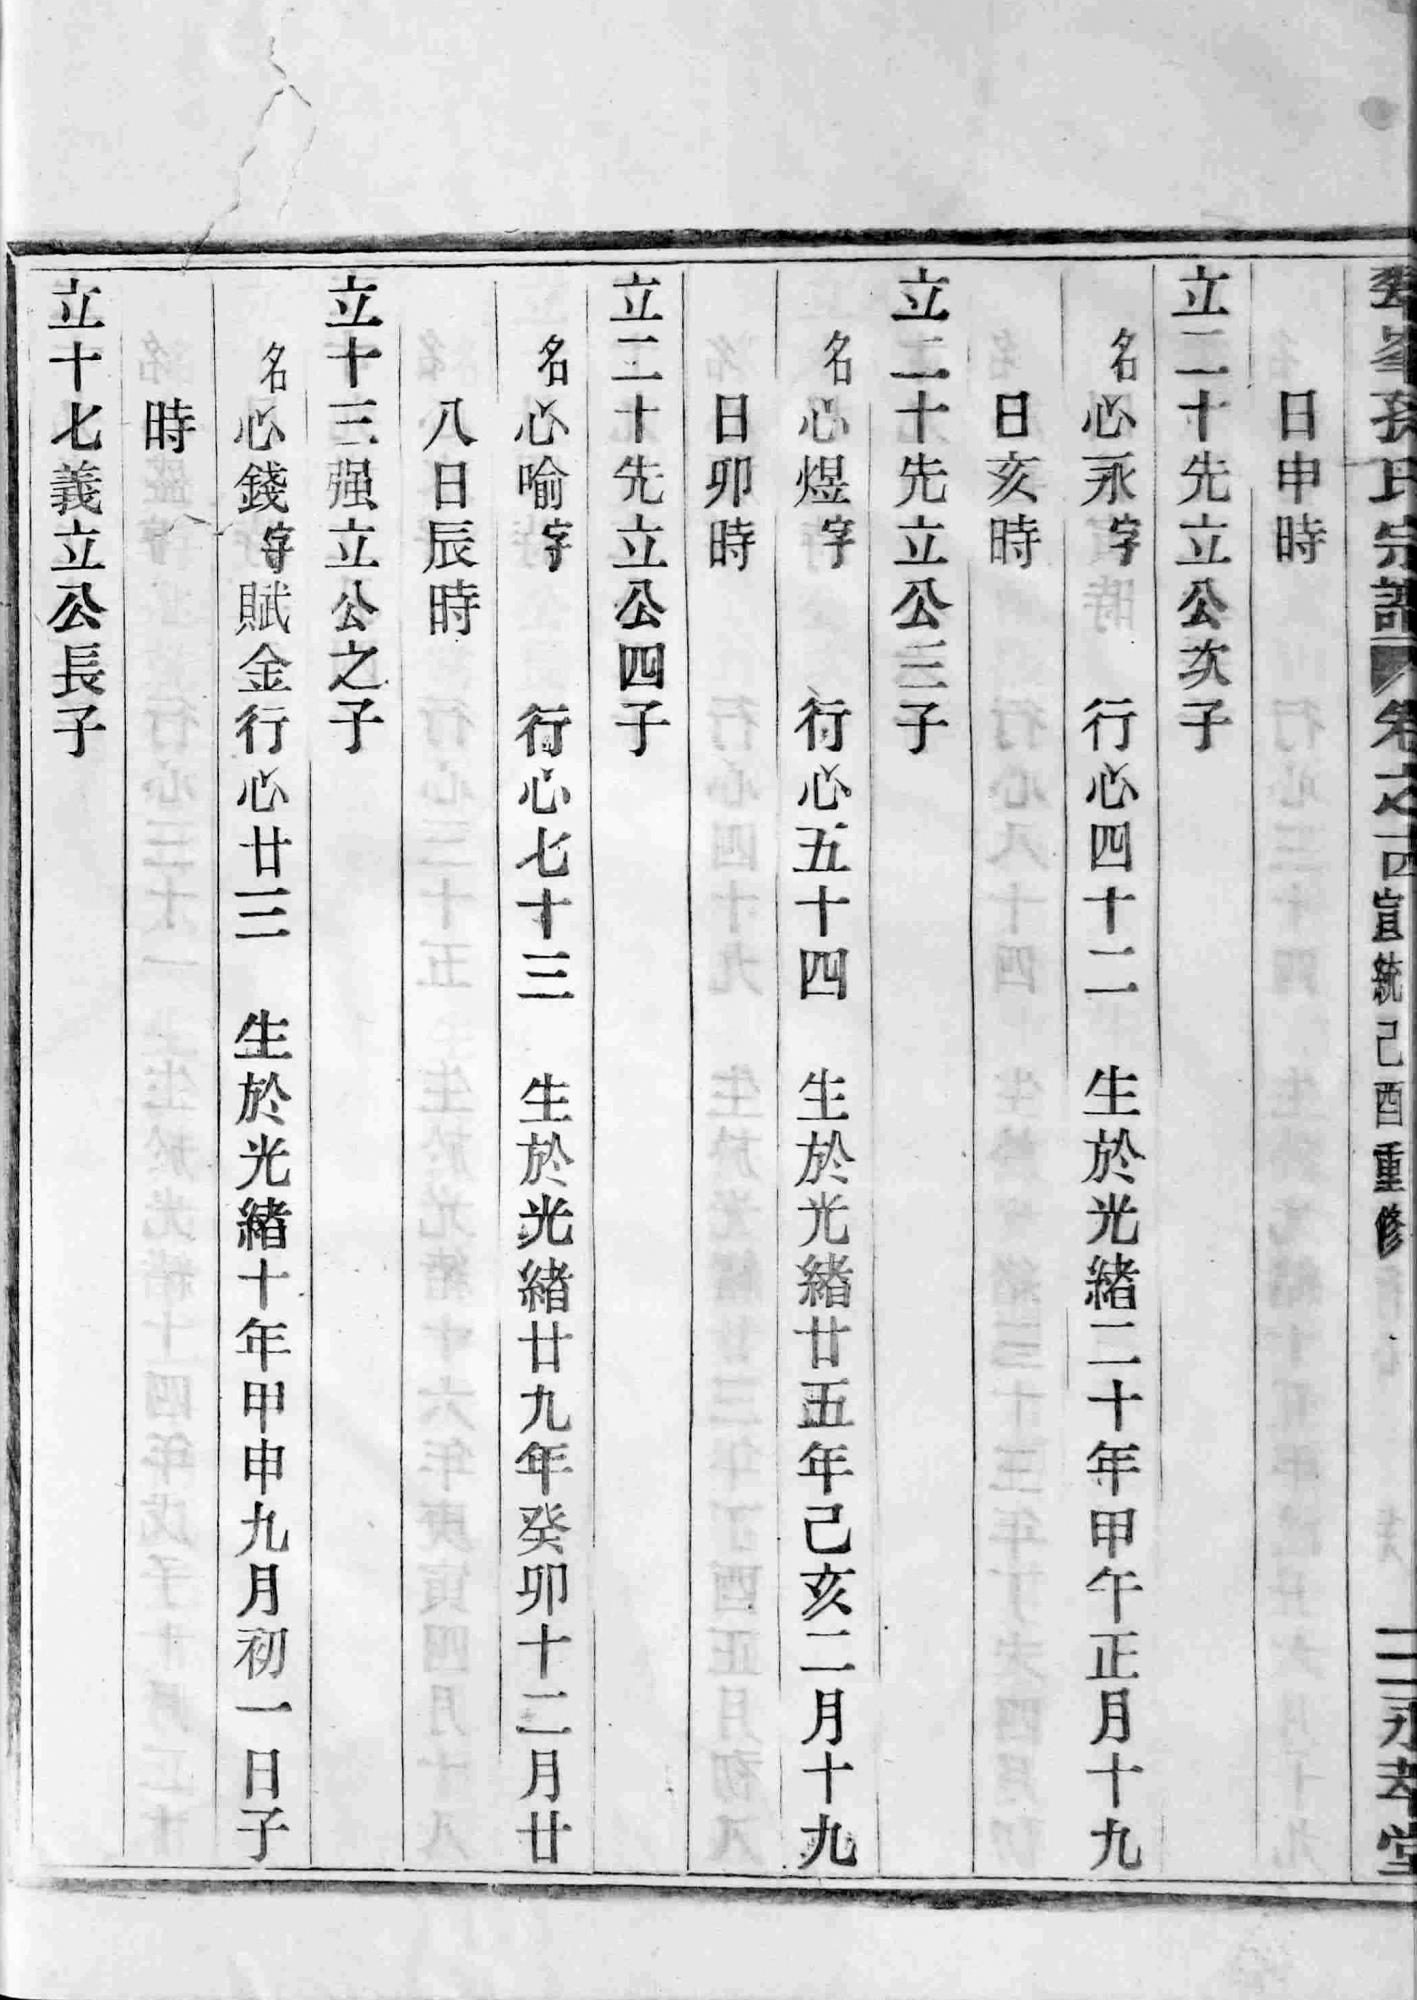 孫氏宗譜 卷之 宣統己酉重修 二 永孝堂
日申時
立二十先立公次子
名心永字 行心四十二 生於光緒二十年甲午正月十九
日亥時
立二十先立公三子
名心煜字 行心五十四 生於光緒廿五年己亥二月十九
日卯時
立二十先立公四子
名心喻字 行心七十三 生於光緒廿九年癸卯十二月廿
八日辰時
立十三强立公之子
名心錢字賦金行心廿三 生於光緒十年甲申九月初一日子
時
立十七義立公長子